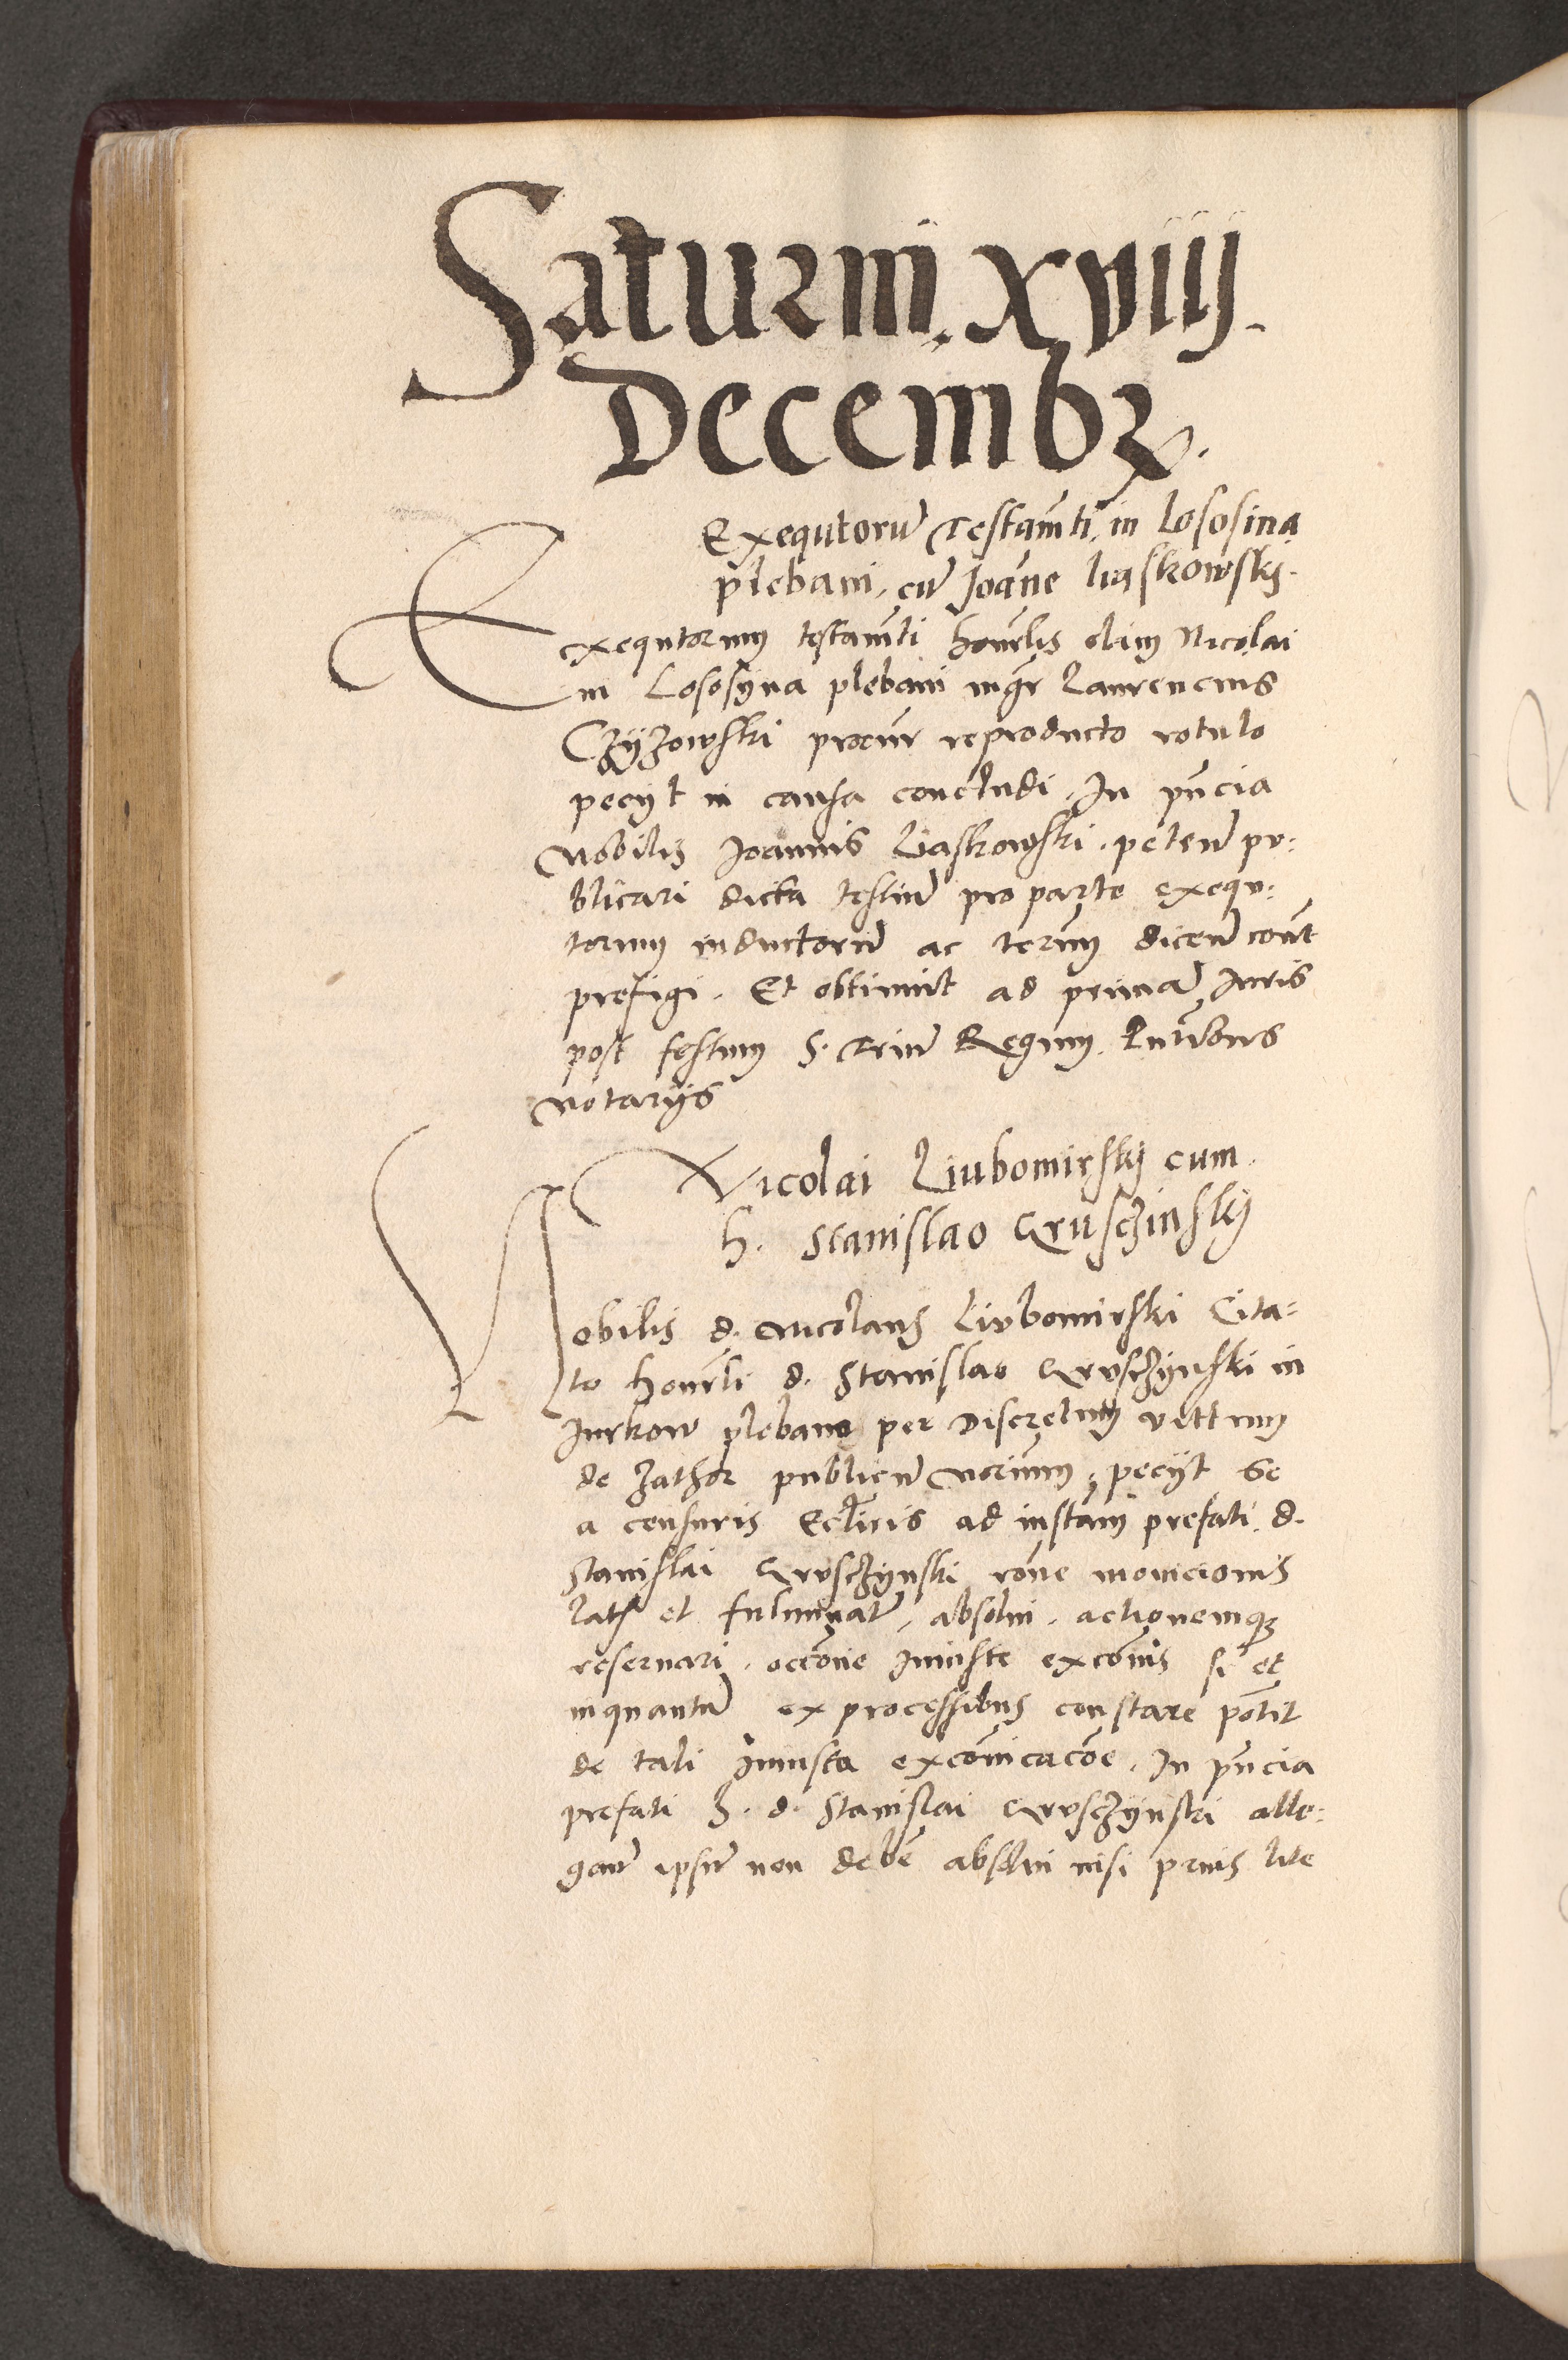 Saturni. xviij.
Decembr.
Exequtorũ Testamẽti in Lososina
plebani, cũ Joãne Liaskowskj.
Exequtorum testamẽti honorlis olim Nicolai
in Lososyna plebani mgr Laurencius
Czyzowski procur reproducto rotulo
pecyt in causa concludi. In pñcia
Nobilis Joannis Liaskowski. peteñ pu=
blicari dicta testiũ pro parte exequ=
torum inductorũ ac termm diceñ cont
prefigi. Et obtinuit ad primã Iuris
post festum S. Triũ Regum.
notarijs
Nicolai Liubomirskj cum
h. Stanislao Gruschinskj
Nobilis d. Nicolaus Liubomirski Cita=
to honorli d. Stanislao Gruschynski in
Jurkow plebano per Discretum vittum
de Zathor publicũ norium, pecyt se
a censuris Ecclicis ad instam prefati d.
Stanislai Gruschynski rone monicionis
lat et fulminat, absolui. actionemq
reseruari. occone Iniuste excois si et
inquantũ ex processibus constare potit
de tali Iniusta excoicacoe. In pñcia
prefati h. d. Stanislai Gruschynski alle=
gañ ipsũ non debe absolui nisi prius lite